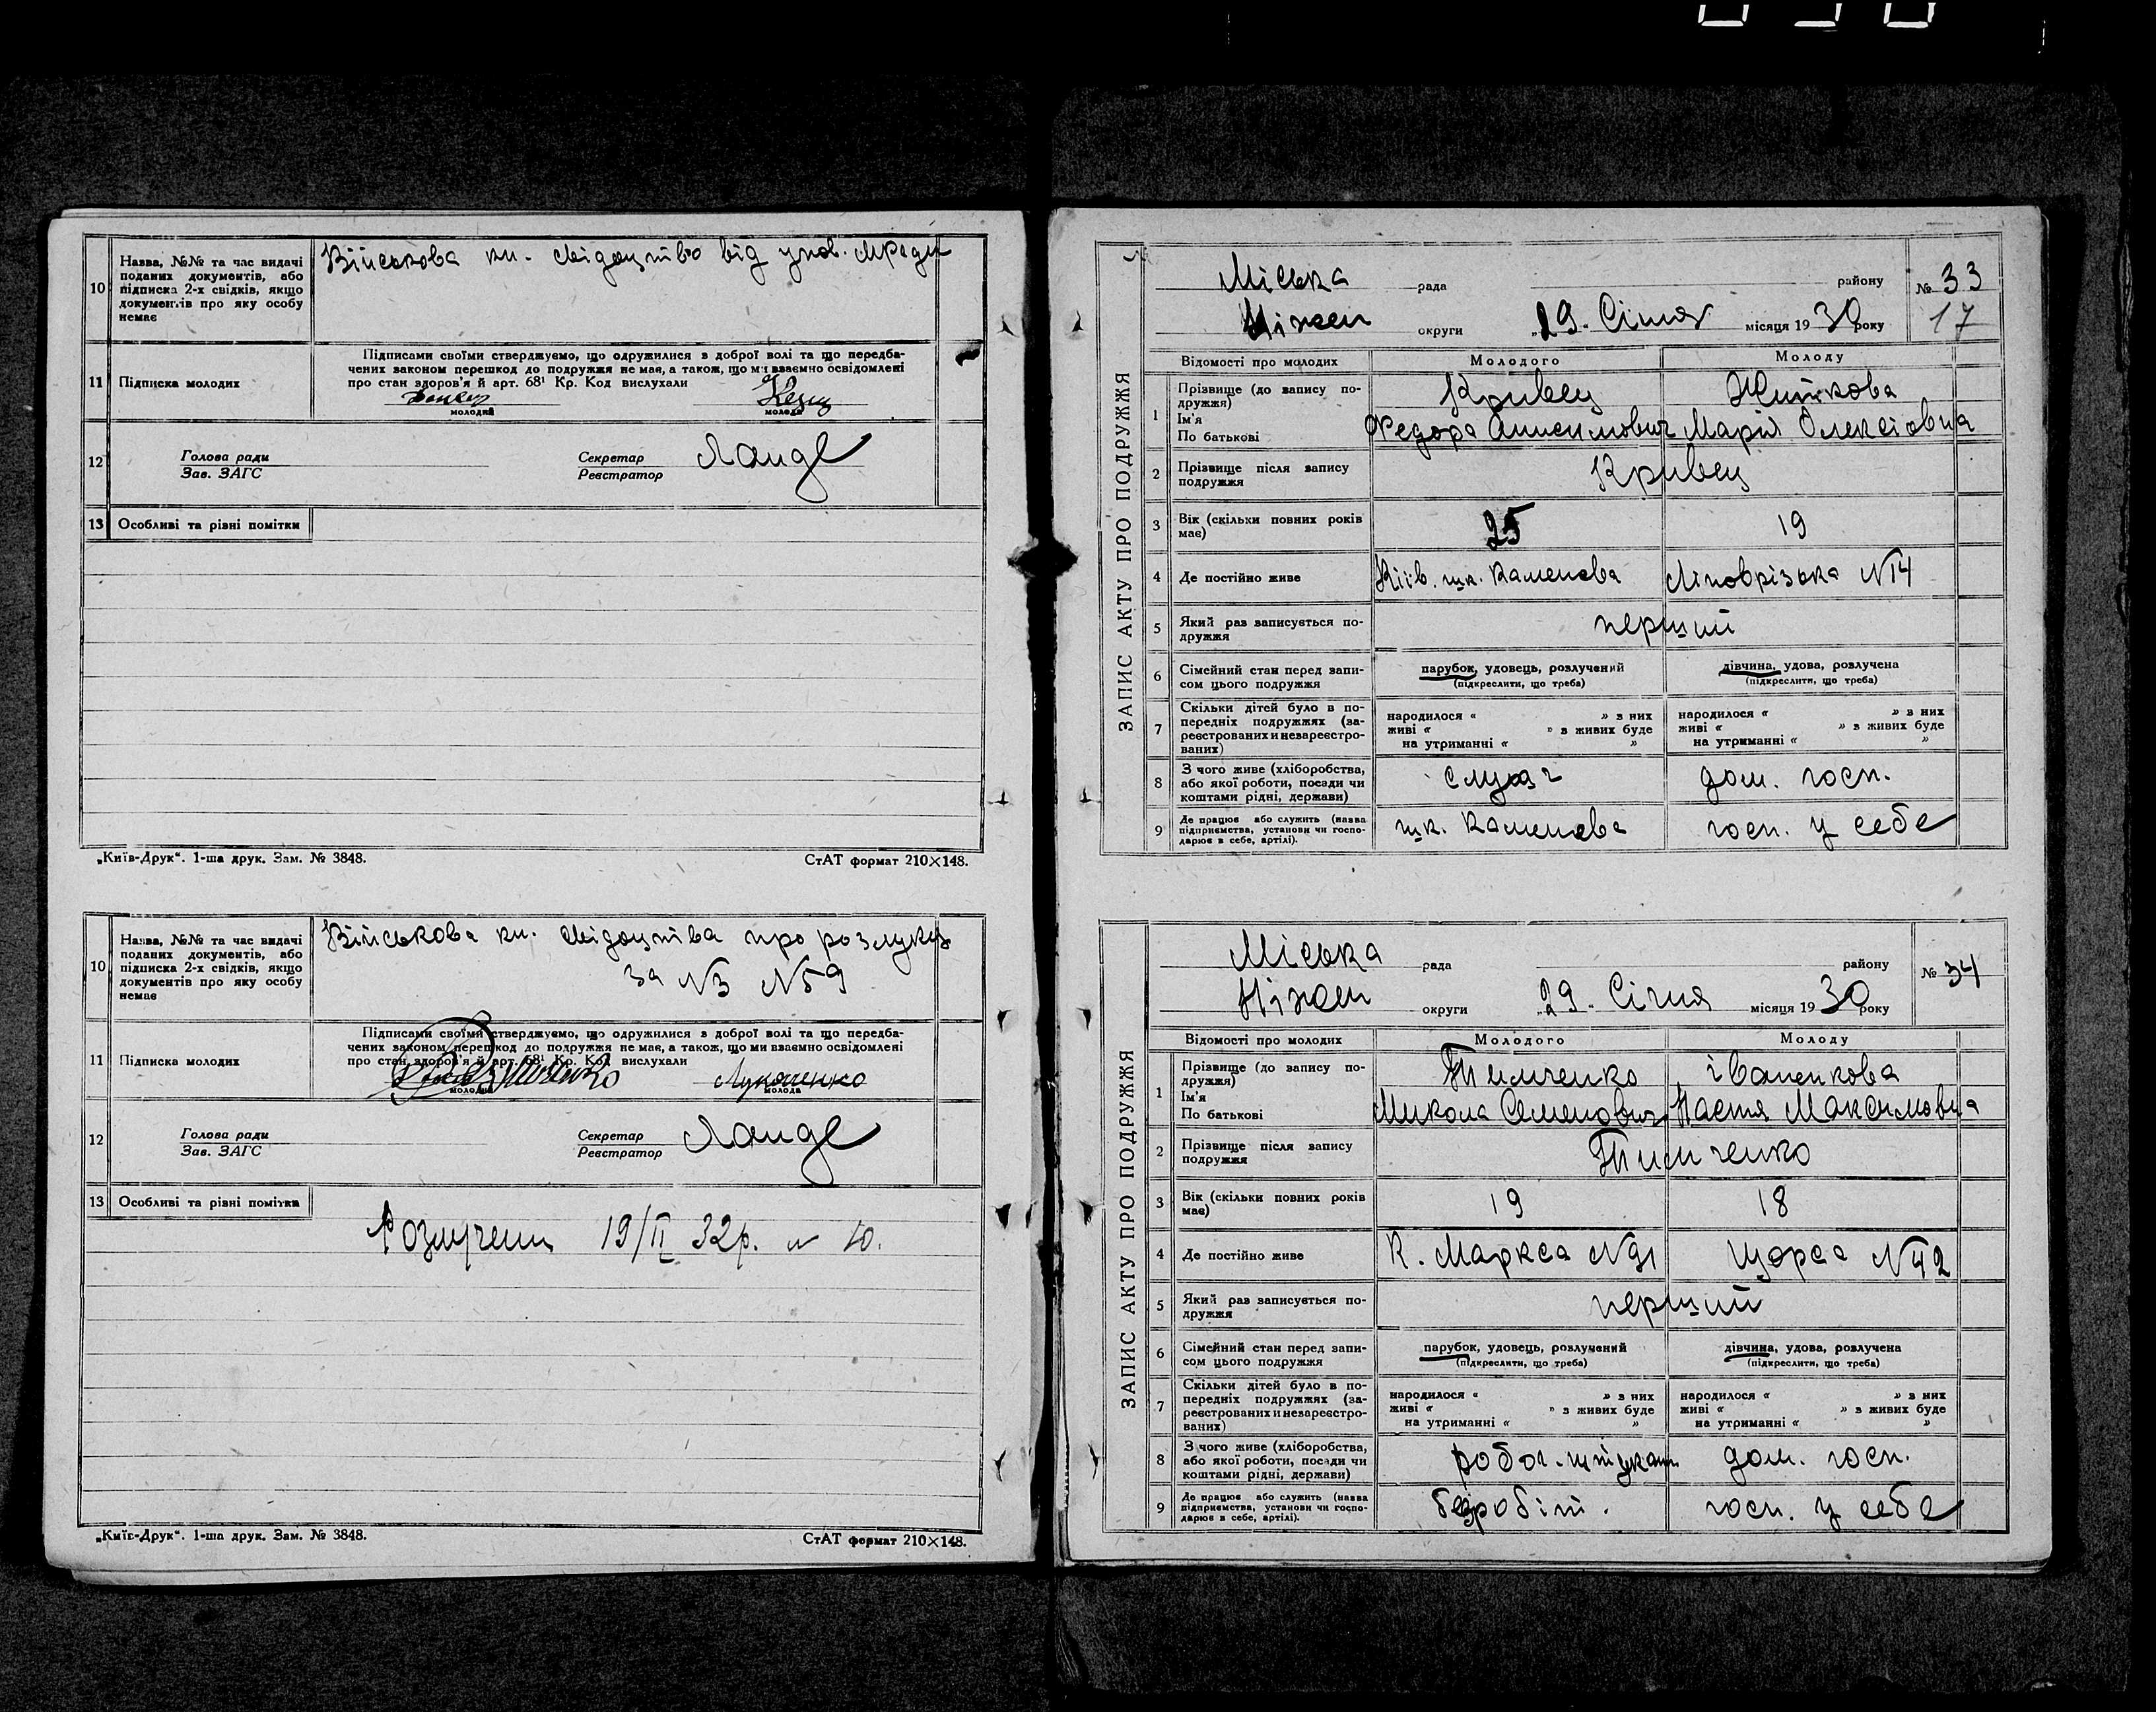 10 Назва, №№ та час видачі поданих документів, або підписка 2-х свідків, якщо документів про яку особу немає
Військова кн. свідоцтво від упов. мради
11 Підписка молодих
Підписами своїми стверджуємо, що одружилися з доброї волі та що передба-
чених законом перешкод до подружжя не має, а також, що ми взаємно освідомлені
про стан здоров'я й арт. 68¹ Кр. Код вислухали
молодий молода
12 Голова ради Секретар Ланде
Зав. ЗАГС Реєстратор
13 Особливі та різні помітки
„Київ-Друк“. 1-ша друк. Зам. № 3848. СтАТ формат 210×148.
10 Назва, №№ та час видачі поданих документів, або підписка 2-х свідків, якщо документів про яку особу немає
Військова кн. свідоцтва про розлуку
за №3 №59
11 Підписка молодих
Підписами своїми стверджуємо, що одружилися з доброї волі та що передба-
чених законом перешкод до подружжя не має, а також, що ми взаємно освідомлені
про стан здоров'я й арт. 68¹ Кр. Код вислухали
Лукашенко
молодий молода
12 Голова ради Секретар Ланде
Зав. ЗАГС Реєстратор
13 Особливі та різні помітки
Розлучени 19/II 32р. № 10.
„Київ-Друк“. 1-ша друк. Зам. № 3848. СтАТ формат 210×148.
ЗАПИС АКТУ ПРО ПОДРУЖЖЯ
Міська рада району № 33
Ніжен округи „29. Січня місяця 1930 року 17
Відомості про молодих Молодого Молоду
1 Прізвище (до запису подружжя) Кривец Житкова
Ім'я По батькові Федора Анисимович Марія Олексіовна
2 Прізвище після запису подружжя Кривец
3 Вік (скільки повних років має) 25 19
4 Де постійно живе Київ. шк. Каменева Ліповрізька №14
5 Який раз записується подружжя перший
6 Сімейний стан перед записом цього подружжя парубок, удовець, розлучений дівчина, удова, розлучена
(підкреслити, що треба) (підкреслити, що треба)
7 Скільки дітей було в попередніх подружжях (зареєстрованих и незареєстрованих)
народилося « » з них народилося « » з них
живі « » з живих буде живі « » з живих буде
на утриманні « » на утриманні « »
8 З чого живе (хліборобства, або якої роботи, посади чи коштами рідні, держави) дом. госп.
9 Де працює або служить (назва підприємства, установи чи господарює в себе, артілі). шк. Каменева госп. у себе
ЗАПИС АКТУ ПРО ПОДРУЖЖЯ
Міська рада району № 34
Ніжен округи „29. Січня місяця 1930 року
Відомості про молодих Молодого Молоду
1 Прізвище (до запису подружжя) Тимченко іваненкова
Ім'я По батькові Микола Семенович Настя Максимовна
2 Прізвище після запису подружжя Тимченко
3 Вік (скільки повних років має) 19 18
4 Де постійно живе К. Маркса №91 Щорса №42
5 Який раз записується подружжя перший
6 Сімейний стан перед записом цього подружжя парубок, удовець, розлучений дівчина, удова, розлучена
(підкреслити, що треба) (підкреслити, що треба)
7 Скільки дітей було в попередніх подружжях (зареєстрованих и незареєстрованих)
народилося « » з них народилося « » з них
живі « » з живих буде живі « » з живих буде
на утриманні « » на утриманні « »
8 З чого живе (хліборобства, або якої роботи, посади чи коштами рідні, держави) робог. штукат. дом. госп.
9 Де працює або служить (назва підприємства, установи чи господарює в себе, артілі). безробіт. госп. у себе